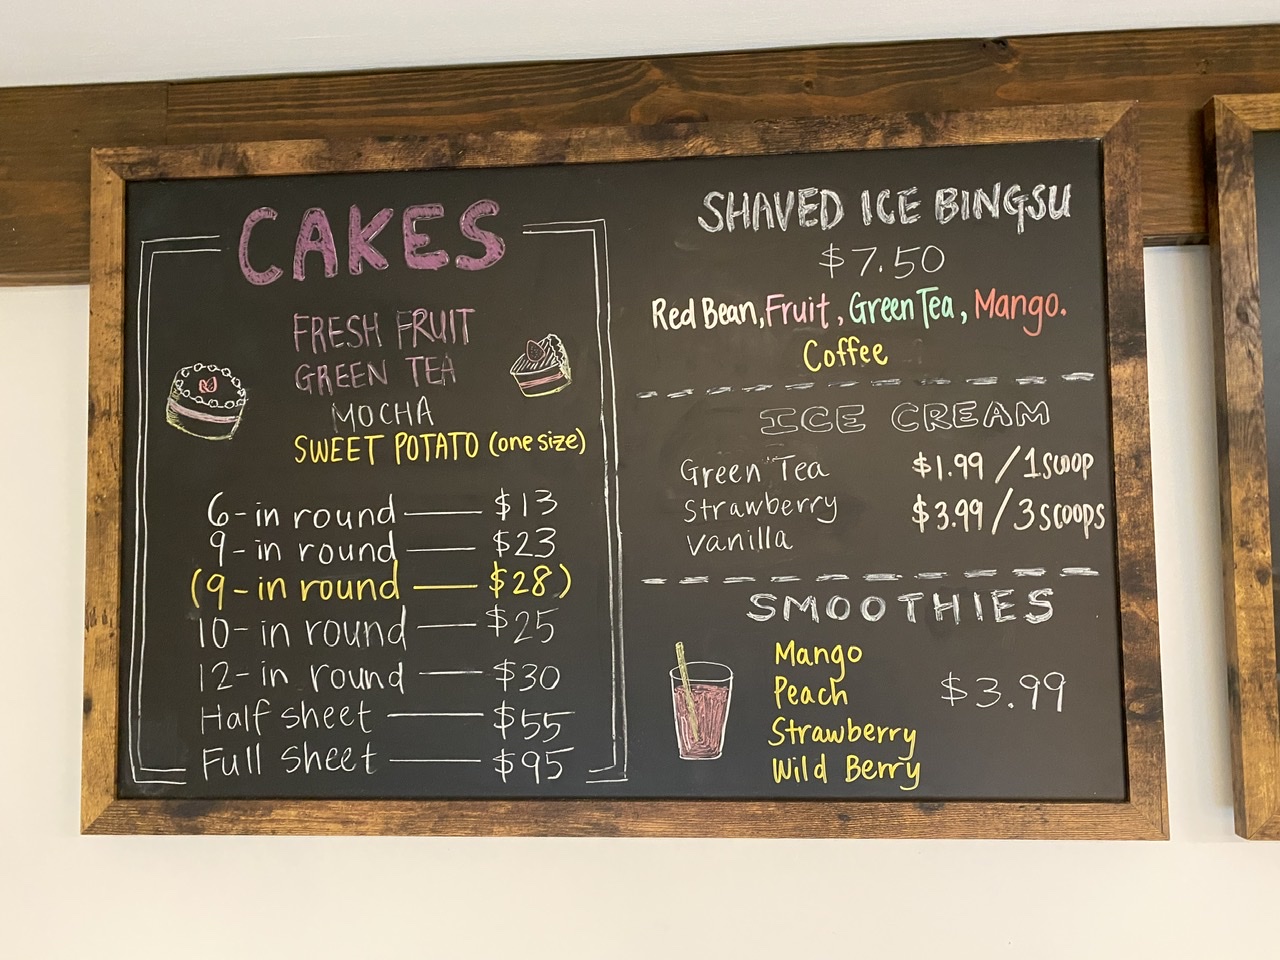 CAKES
FRESH FRUIT
GREEN TEA
MOCHA
SWEET POTATO (one size)
6-in round —— $13
9-in round —— $23
(9-in round —— $28)
10-in round —— $25
12-in round —— $30
Half sheet —— $55
Full sheet —— $95
SHAVED ICE BINGSU
$7.50
Red Bean, Fruit, Green Tea, Mango.
Coffee
ICE CREAM
Green Tea
Strawberry
Vanilla
$1.99 / 1 scoop
$3.99 / 3 scoops
SMOOTHIES
Mango
Peach
Strawberry
Wild Berry
$3.99